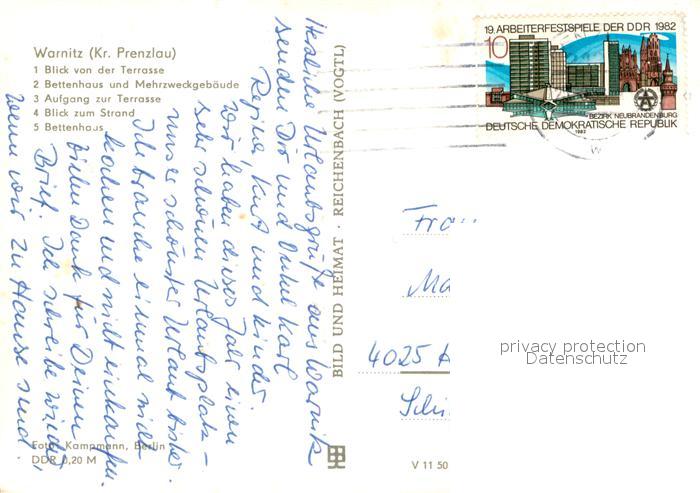 Warnitz (Kr. Prenzlau)
1 Blick von der Terrasse
2 Bettenhaus und Mehrzweckgebäude
3 Aufgang zur Terrasse
4 Blick zum Strand
5 Bettenhaus
Herzliche Urlaubsgrüße aus Warnitz
senden Dir und Onkel Karl
Regina, Kurt und Kinder.
Wir haben dieses Jahr einen
sehr schönen Urlaubsplatz –
unser schönster Urlaub bisher.
Ich brauche einmal nicht
kochen und nicht einkaufen.
Vielen Dank für Deinen
Brief. Ich schreibe wieder,
wenn wir zu Hause sind.
Foto: Kampmann, Berlin
DDR 0,20 M
BILD UND HEIMAT · REICHENBACH (VOGTL.)
V 11 50
19. ARBEITERFESTSPIELE DER DDR 1982
10
BEZIRK NEUBRANDENBURG
DEUTSCHE DEMOKRATISCHE REPUBLIK
1982
Fra
Ma
4025
privacy protection
Datenschutz